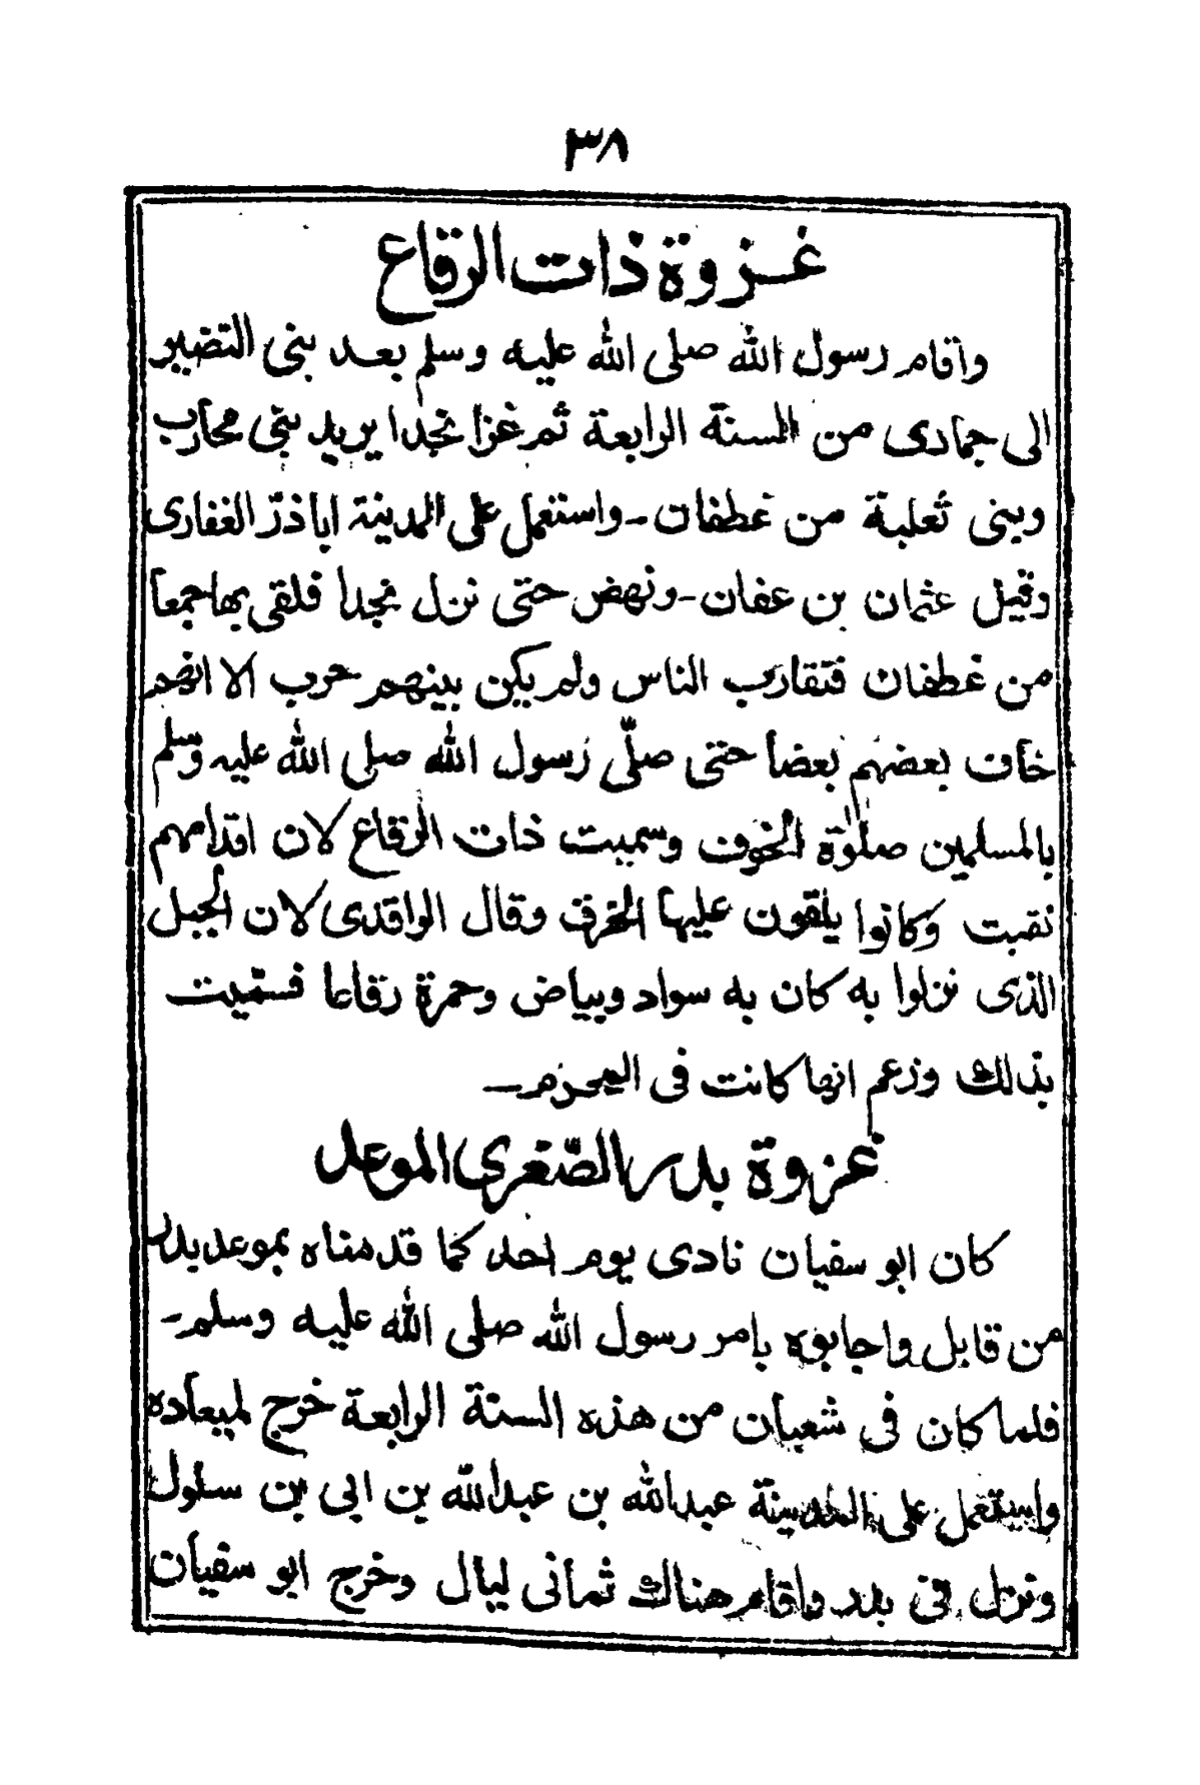 ٣٨
غزوة ذات الرقاع
واقام رسول الله صلى الله عليه وسلم بعد بنى النضير
الى جمادى من السنة الرابعة ثم غزا نجدا يريد بنى محارب
وبنى ثعلبة من غطفان - واستعمل على المدينة اباذرّ الغفارى
وقيل عثمان بن عفان - ونهض حتى نزل نجدا فلقى بها جمعا
من غطفان فتقارب الناس ولم يكن بينهم حرب الا انهم
خاف بعضهم بعضا حتى صلّى رسول الله صلى الله عليه وسلم
بالمسلمين صلوٰة الخوف وسميت ذات الرقاع لان اقدامهم
نقبت وكانوا يلقون عليها الخرق وقال الواقدى لان الجبل
الذى نزلوا به كان به سواد وبياض وحمرة رقاعا فسمّيت
بذلك وزعم انها كانت فى المحرم -
غزوة بدر الصّغرى الموعد
كان ابو سفيان نادى يوم احد كما قدمناه بموعد بدر
من قابل واجابوه بامر رسول الله صلى الله عليه وسلم -
فلما كان فى شعبان من هذه السنة الرابعة خرج لميعاده
واستعمل على المدينة عبدالله بن عبدالله بن ابى بن سلول
ونزل فى بدر واقام هناك ثمانى ليال وخرج ابو سفيان